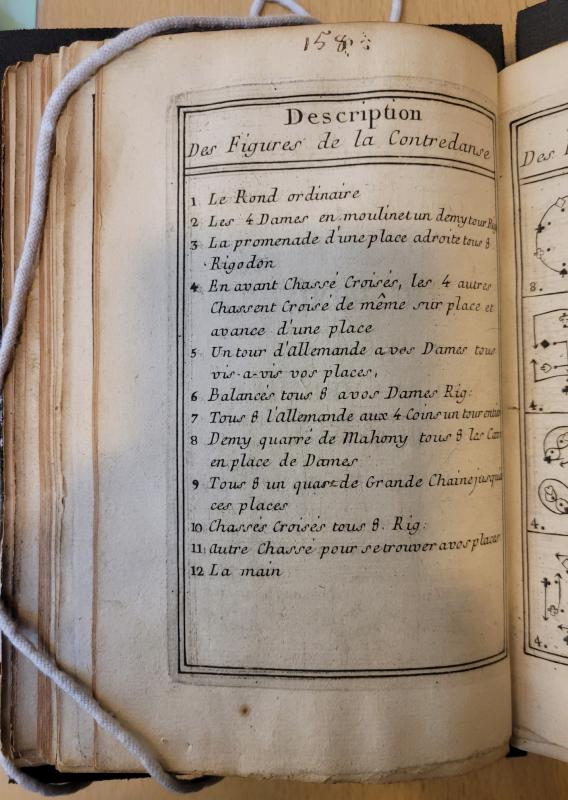 158
Description
Des Figures de la Contredanse
1 Le Rond ordinaire
2 Les 4 Dames en moulinet un demy tour Rig
3 La promenade d'une place adroite tous 8
Rigodon
4 En avant Chassé Croisés, les 4 autres
Chassent Croisé de même sur place et
avance d'une place
5 Un tour d'allemande a vos Dames tous
vis-a-vis vos places,
6 Balancés tous 8 a vos Dames Rig:
7 Tous 8 l'allemande aux 4 Coins un tour entier
8 Demy quarré de Mahony tous 8 les Cav
en place de Dames
9 Tous 8 un quart de Grande Chaine jusqua
ces places
10 Chassés Croisés tous 8. Rig:
11 autre Chassé pour se trouver a vos places
12 La main
Des
8.
4.
4.
4.